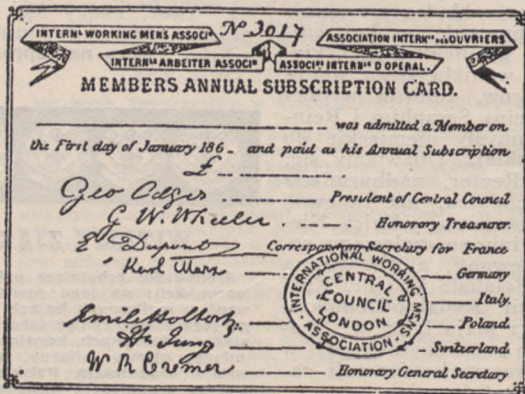 Nº 3017
INTERNL WORKING MENS ASSOCIN
ASSOCIATION INTERNLE OUVRIERS
INTERNLE ARBEITER ASSOCIN
ASSOCINE INTERNLE D OPERAI.
MEMBERS ANNUAL SUBSCRIPTION CARD.
was admitted a Member on
the First day of January 186_ and paid as his Annual Subscription
£
Geo Odger President of Central Council
G. W. Wheeler Honorary Treasurer.
E Dupont Corresponding Secretary for France
Karl Marx Germany
Italy.
Emile Holtorp Poland
H Jung Switzerland
W R Cremer Honorary General Secretary
INTERNATIONAL WORKING MENS ASSOCIATION
CENTRAL
COUNCIL
LONDON